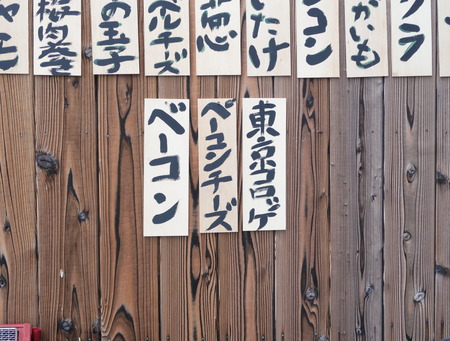 クラ
がいも
コン
いたけ
心
ルチーズ
の玉子
肉巻き
ャモ
東京コロッケ
ベーコンチーズ
ベーコン